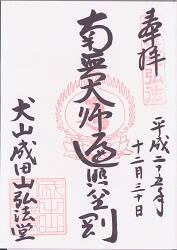 奉拝
平成二十五年
十二月三十日
南無大師遍照金剛
犬山成田山弘法堂
弘法
成田山